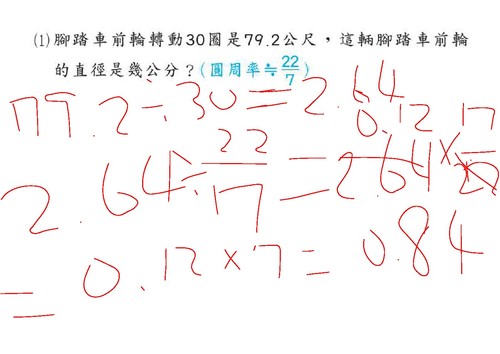 (1)腳踏車前輪轉動30圈是79.2公尺，這輛腳踏車前輪
的直徑是幾公分？(圓周率≒22/7)
79.2÷30=2.64
0.12
2.64÷22/7=2.64×7/22
=0.12×7=0.84